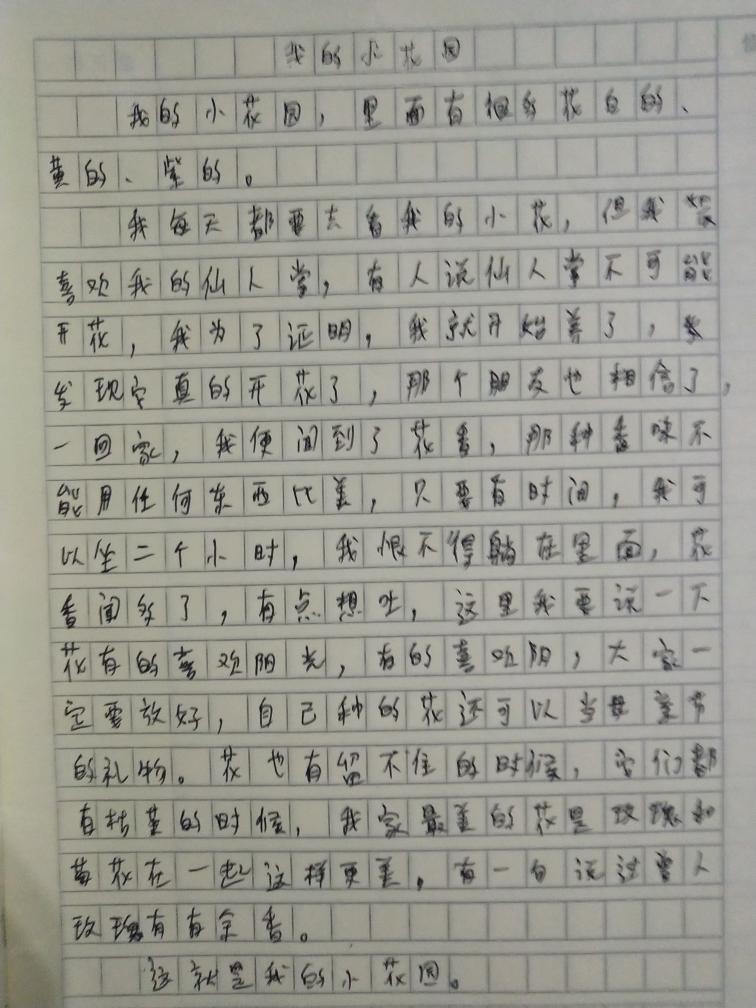 我的小花园
我的小花园，里面有很多花白的、
黄的、紫的。
我每天都要去看我的小花，但我
喜欢我的仙人掌，有人说仙人掌不可能
开花，我为了证明，我就开始养了，
发现它真的开花了，那个朋友也相信了，
一回家，我便闻到了花香，那种香味不
能用任何东西比美，只要有时间，我可
以坐二个小时，我恨不得躺在里面，花
香闻多了，有点想吐，这里我要说一下
花有的喜欢阳光，有的喜欢阴，大家一
定要放好，自己种的花还可以当母亲节
的礼物。花也有留不住的时候，它们都
有枯萎的时候，我家最美的花是玫瑰和
菊花在一起这样更美，有一句说过曾人
玫瑰有有余香。
这就是我的小花园。